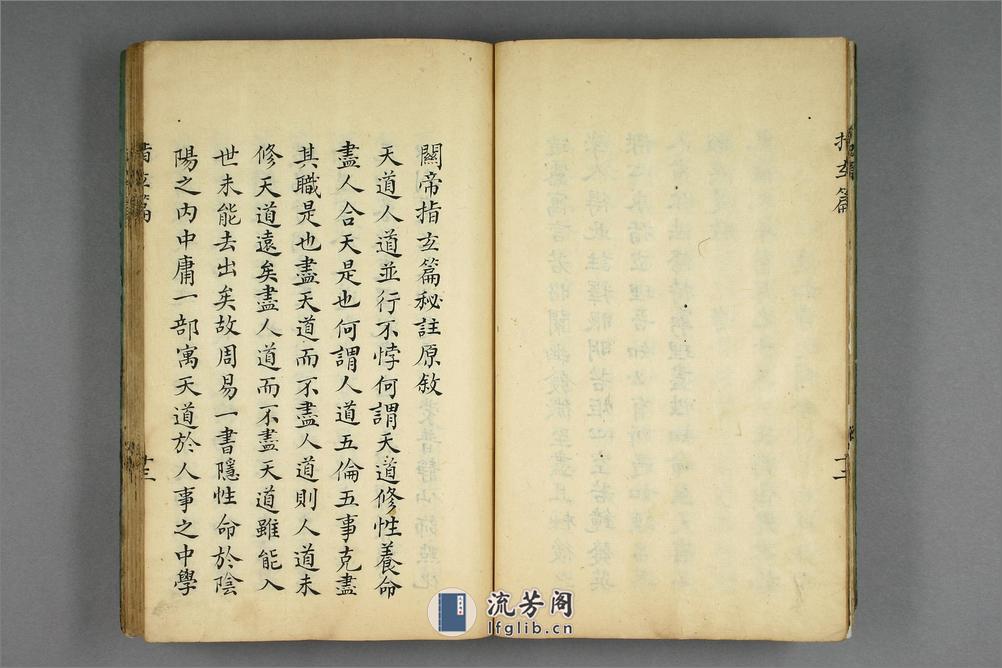 指玄篇
十二
關帝指玄篇秘註原敘
天道人道並行不悖何謂天道修性養命
盡人合天是也何謂人道五倫五事克盡
其職是也盡天道而不盡人道則人道未
修天道遠矣盡人道而不盡天道雖能入
世未能去出矣故周易一書隱性命於陰
陽之內中庸一部寓天道於人事之中學
指玄篇
十三
流芳阁
lfglib.cn